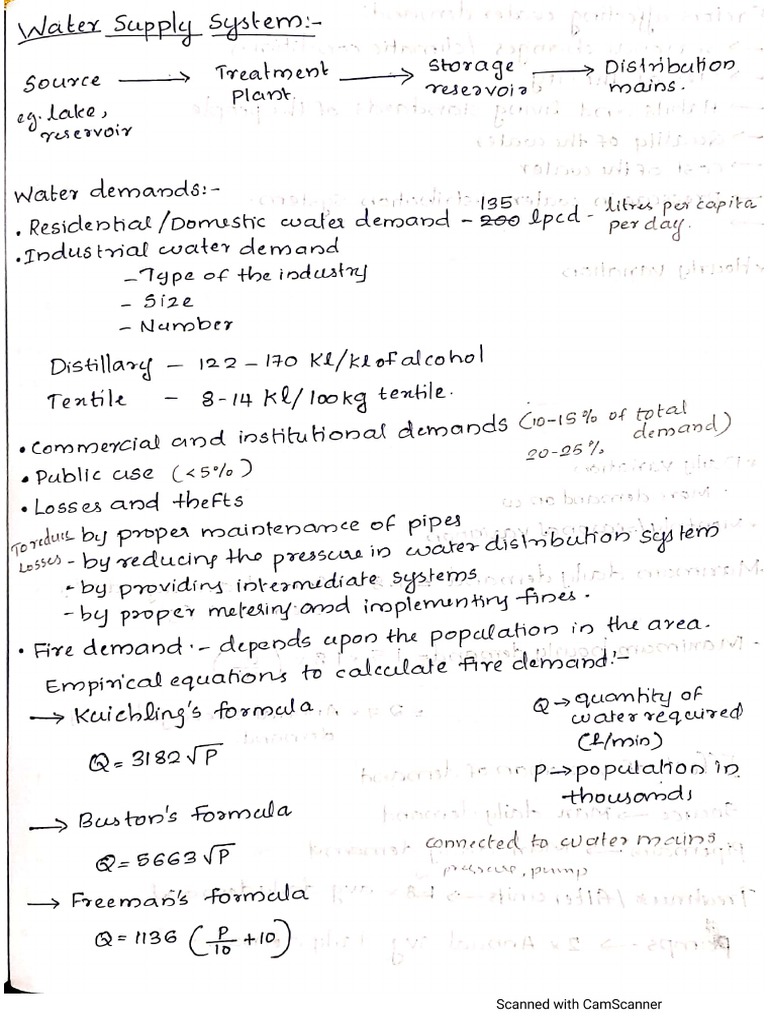 Water Supply System:-
Source → Treatment Plant. → Storage reservoir → Distribution mains.
eg. lake, reservoir
Water demands:-
. Residential/Domestic water demand - 135 200 lpcd - litres per capita per day.
. Industrial water demand
- Type of the industry
- Size
- Number
Distillary - 122 - 170 Kl/kl of alcohol
Textile - 8-14 Kl/100kg textile.
• Commercial and institutional demands (10-15% of total demand)
20-25%
• Public use (<5%)
• Losses and thefts
To reduce Losses - by proper maintenance of pipes
- by reducing the pressure in water distribution system
- by providing intermediate systems
- by proper metering and implementing fines.
• Fire demand :- depends upon the population in the area.
Empirical equations to calculate fire demand:-
→ Kuichling's formula
Q = 3182 √P
Q → quantity of water required (l/min)
P → population in thousands
→ Buston's formula
Q = 5663 √P
connected to water mains
pressure, pump
→ Freeman's formula
Q = 1136 (P/10 + 10)
Scanned with CamScanner